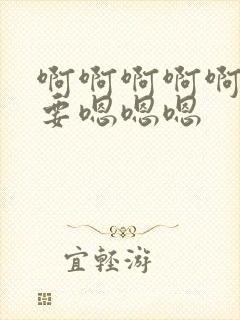 啊啊啊啊啊
要嗯嗯嗯
宜轻游